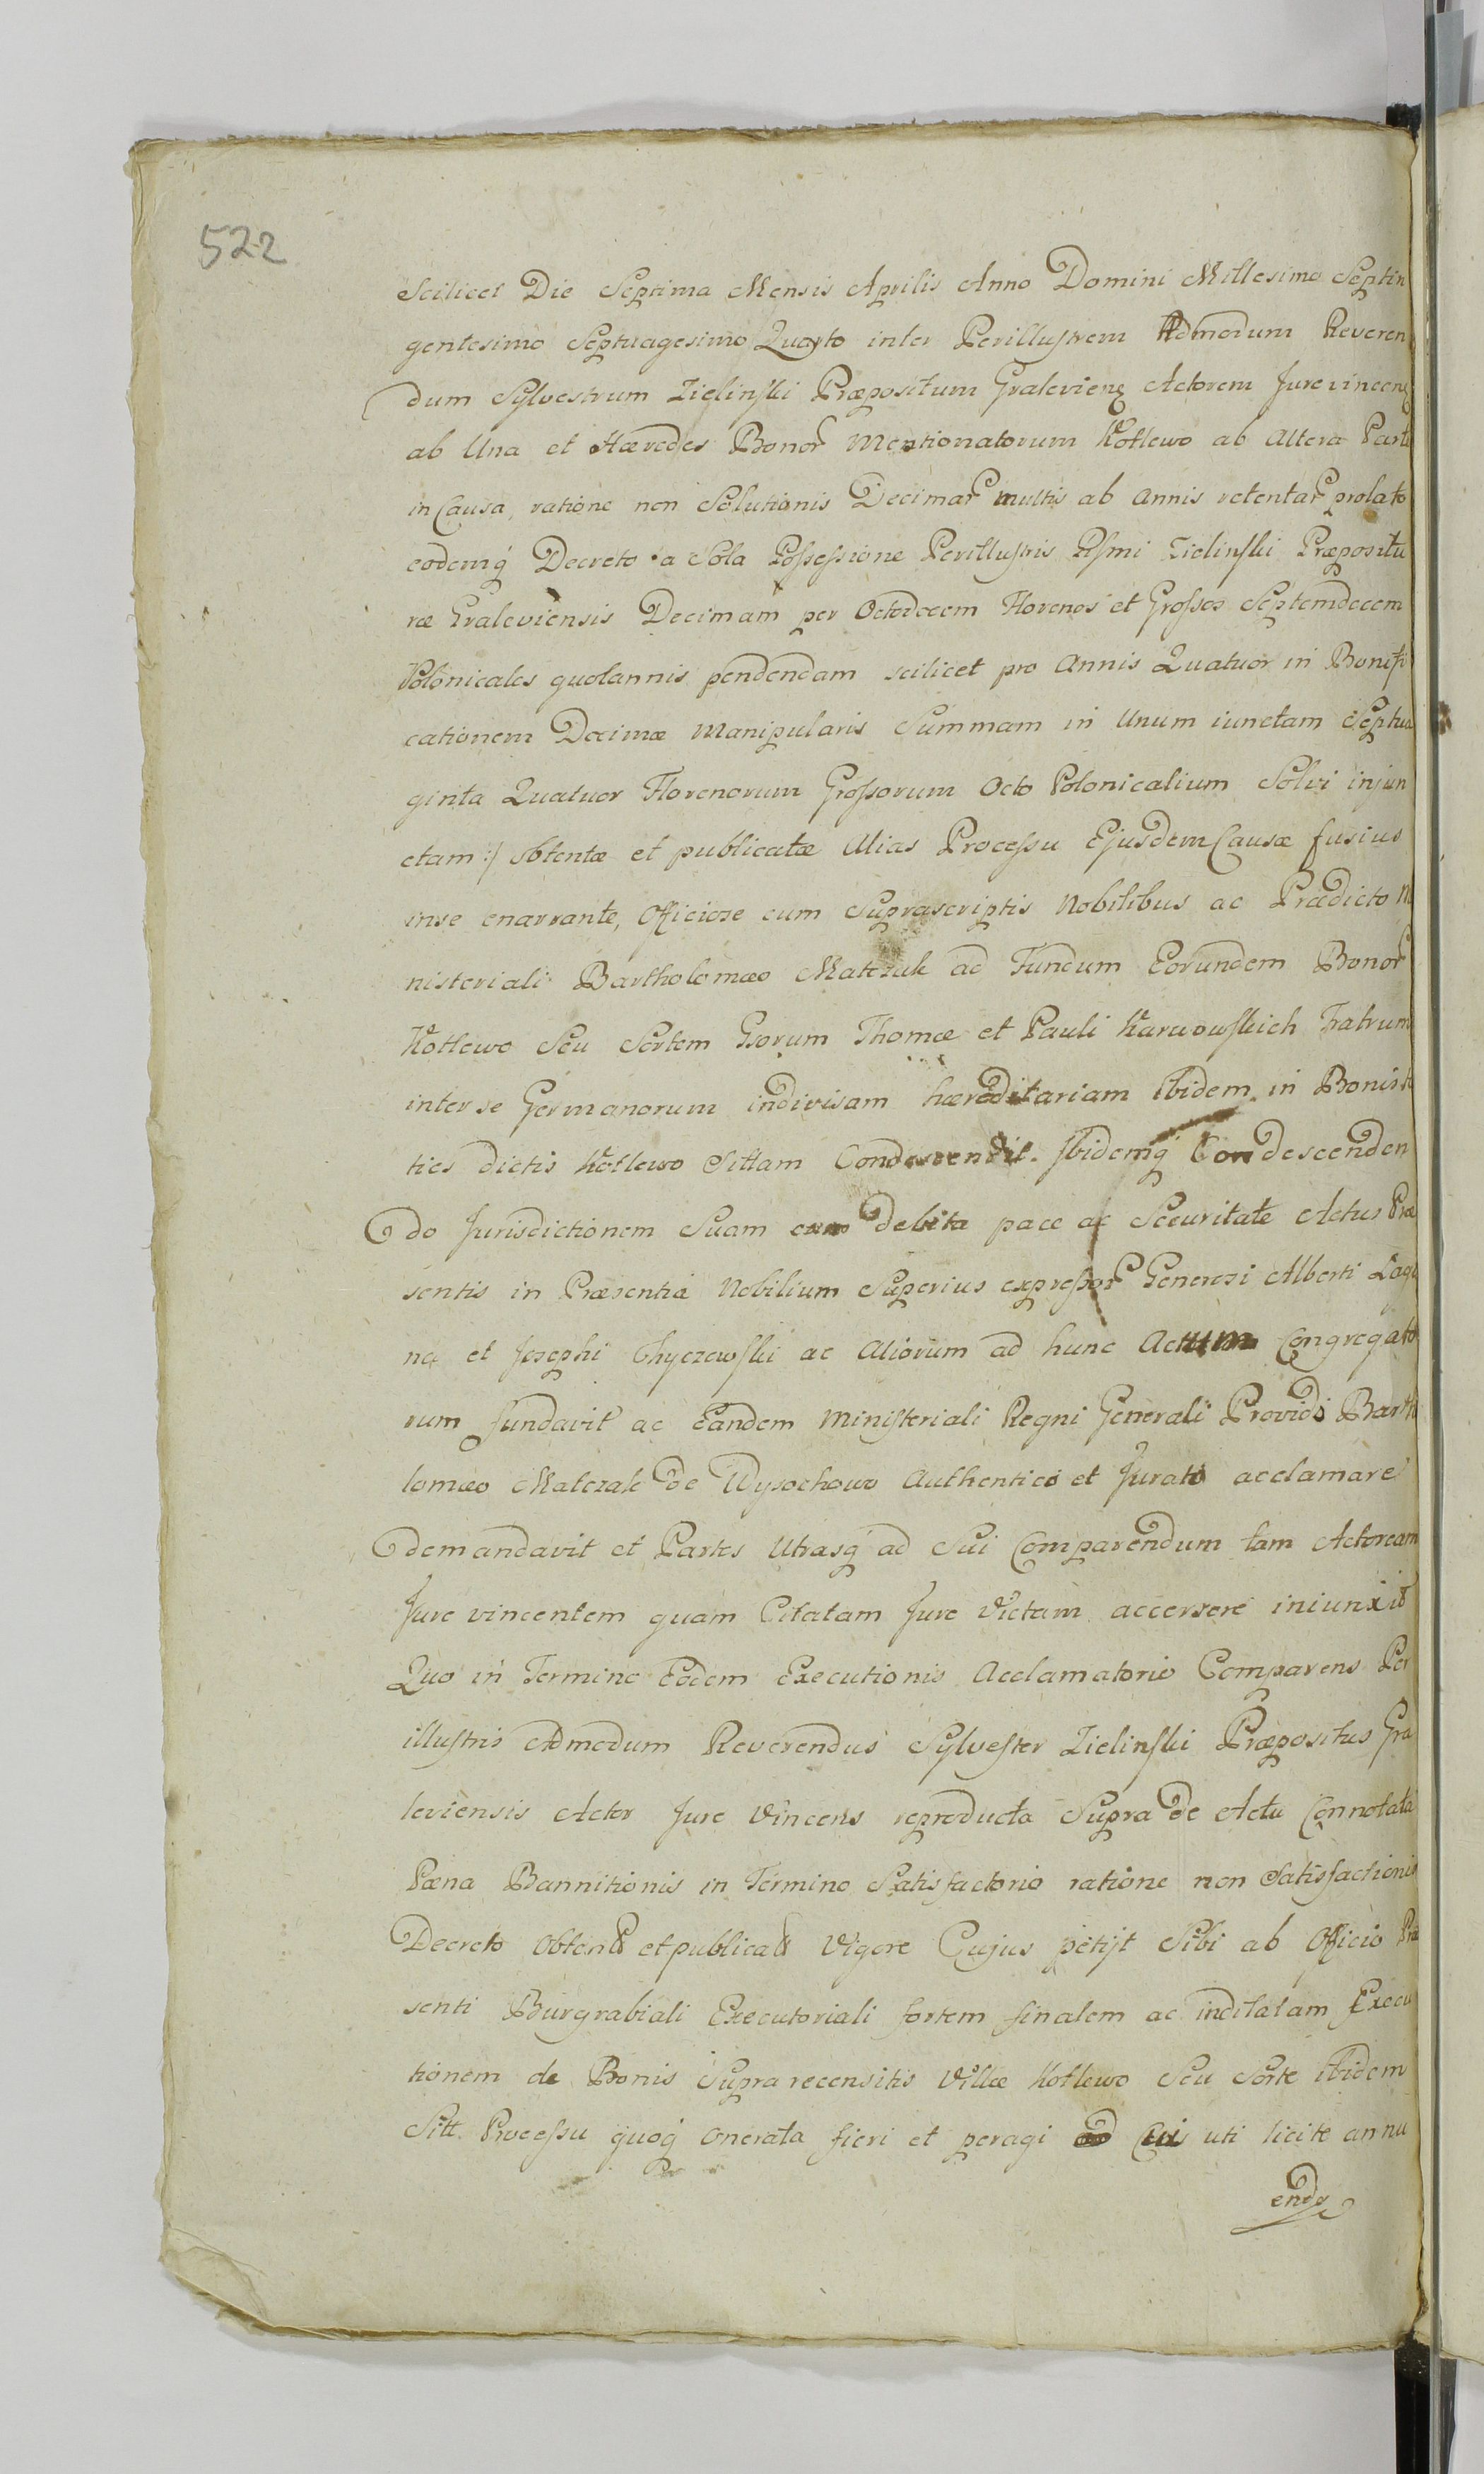 522
Scilicet Die Septima Mensis Aprilis Anno Domini Millesimo Septin
gentesimo Septuagesimo Quarto inter Perillustrem Admodum Reveren
dum Sylvestrum Zielinski Præpositum Gralevien Actorem Jure vincen
ab Una et Hæredes Bonor Mentionatorum Kotlewo ab Altera Parte
in Causa, ratione non Solutionis Decimar multis ab Annis retentar prolato
eodemq Decreto a Sola Possessione Perillustris Rsmi Zielinski Præpositu
ræ Graleviensis Decimam per Octodecem Florenos et Grossos Septemdecem
Polonicales quotannis pendendam scilicet pro Annis Quatuor in Bonifi
cationem Decimæ Manipularis Summam in Unum iunctam Septua
ginta Quatuor Florenorum Grossorum Octo Polonicalium Solvi injun
ctam :/ obtentæ et publicatæ Alias Processu Ejusdem Causæ fusius
in se enarrante, Officiose cum Suprascriptis Nobilibus ac Prædicto Mi
nisteriali Bartholomæo Matczak ad Fundum Eorundem Bonor
Kotlewo Seu Sortem Gsorum Thomæ et Pauli Karwowskich Fratrum
inter se Germanorum indivisam hæreditariam Ibidem in Bonis to
ties dictis Kotlewo Sittam Condescendit. Ibidemq Condescenden
do Jurisdictionem Suam cum debita pace ac Securitate Actus Præ
sentis in Præsentia Nobilium Superius expressor Generosi Alberti
na et Josephi Chyczewski ac Aliorum ad hunc Actum Congregato
rum fundavit ac Eandem Ministeriali Regni Generali Provido Bartho
lomæo Matczak de Wysochowo Authentico et Jurato acclamare
demandavit et Partes Utrasq ad Sui Comparendum tam Actoream
Jure vincentem quam Citatam Jure Victam accersere iniunxit
Quo in Termino Eodem Executionis Acclamatorio Comparens Per
illustris Admodum Reverendus Sylvester Zielinski Præpositus Gra
leviensis Actor Jure Vincens reproducta Supra de Actu Connotata
Pæna Bannitionis in Termino Satisfactorio ratione non Satisfactionis
Decreto obtenta et publicata Vigore Cujus petijt Sibi ab Officio Præ
senti Burgrabiali Executoriali fortem finalem ac indilatam Execu
tionem de Bonis Supra recensitis Villæ Kotlewo Seu Sorte ibidem
Sitt. Processu quoq onerata fieri et peragi Cui uti licite annu
endo